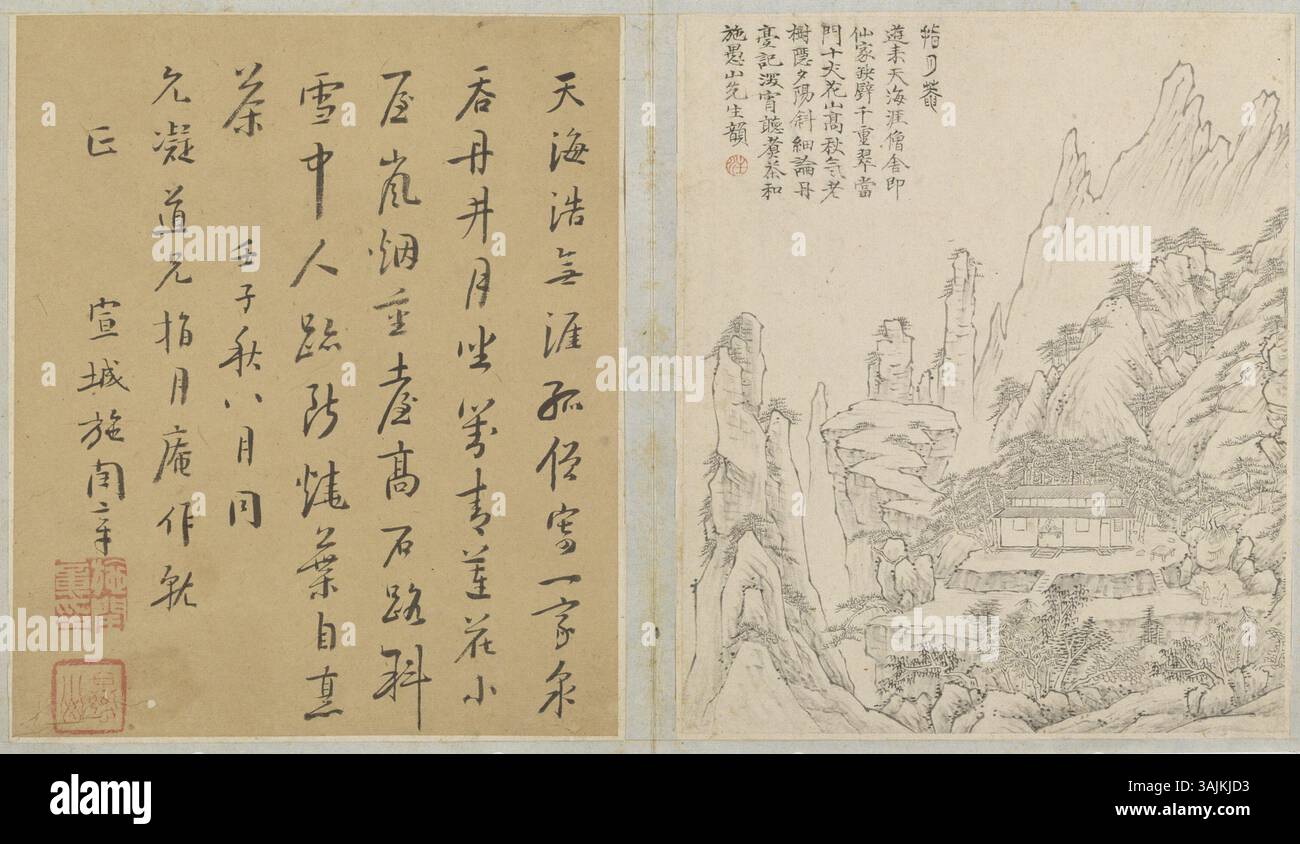 指月菴
遊来天海涯僧舎即
仙家鉄壁千重翠當
門十丈花山高秋氣老
樹隱夕陽斜細論丹
臺記深宵聽煮茶和
施愚山先生韻
天海浩無涯孤僧寄一家泉
吞丹井月坐青蓮花小
屋嵐烟重臺高石路斜
雪中人跡斷燒葉自煎
茶 壬子秋八月同
允凝道兄指月庵作就
正
宣城施閏章
alamy
Image ID: 3AJKJD3
www.alamy.com